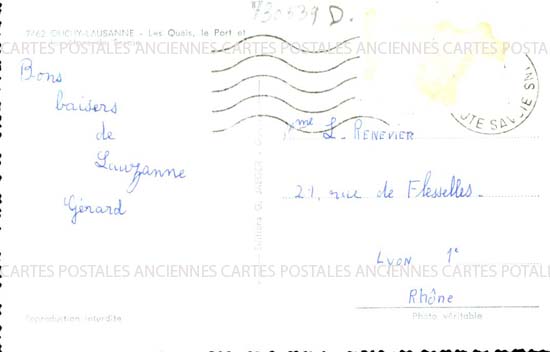 730539 D.
7762 OUCHY-LAUSANNE - Les Quais, le Port et
CARTES POSTALES ANCIENNES CARTES POSTALES ANCIENNES CARTES POSTALES ANCIENNES
Bons
baisers
de
Lauzanne
Gérard
UTE SAVOIE
Mme L. RENEVIER
21, rue de Flesselles
LYON 1e
Rhône
CARTES POSTALES ANCIENNES CARTES POSTALES ANCIENNES CARTES POSTALES ANCIENNES
Reproduction interdite
Photo véritable